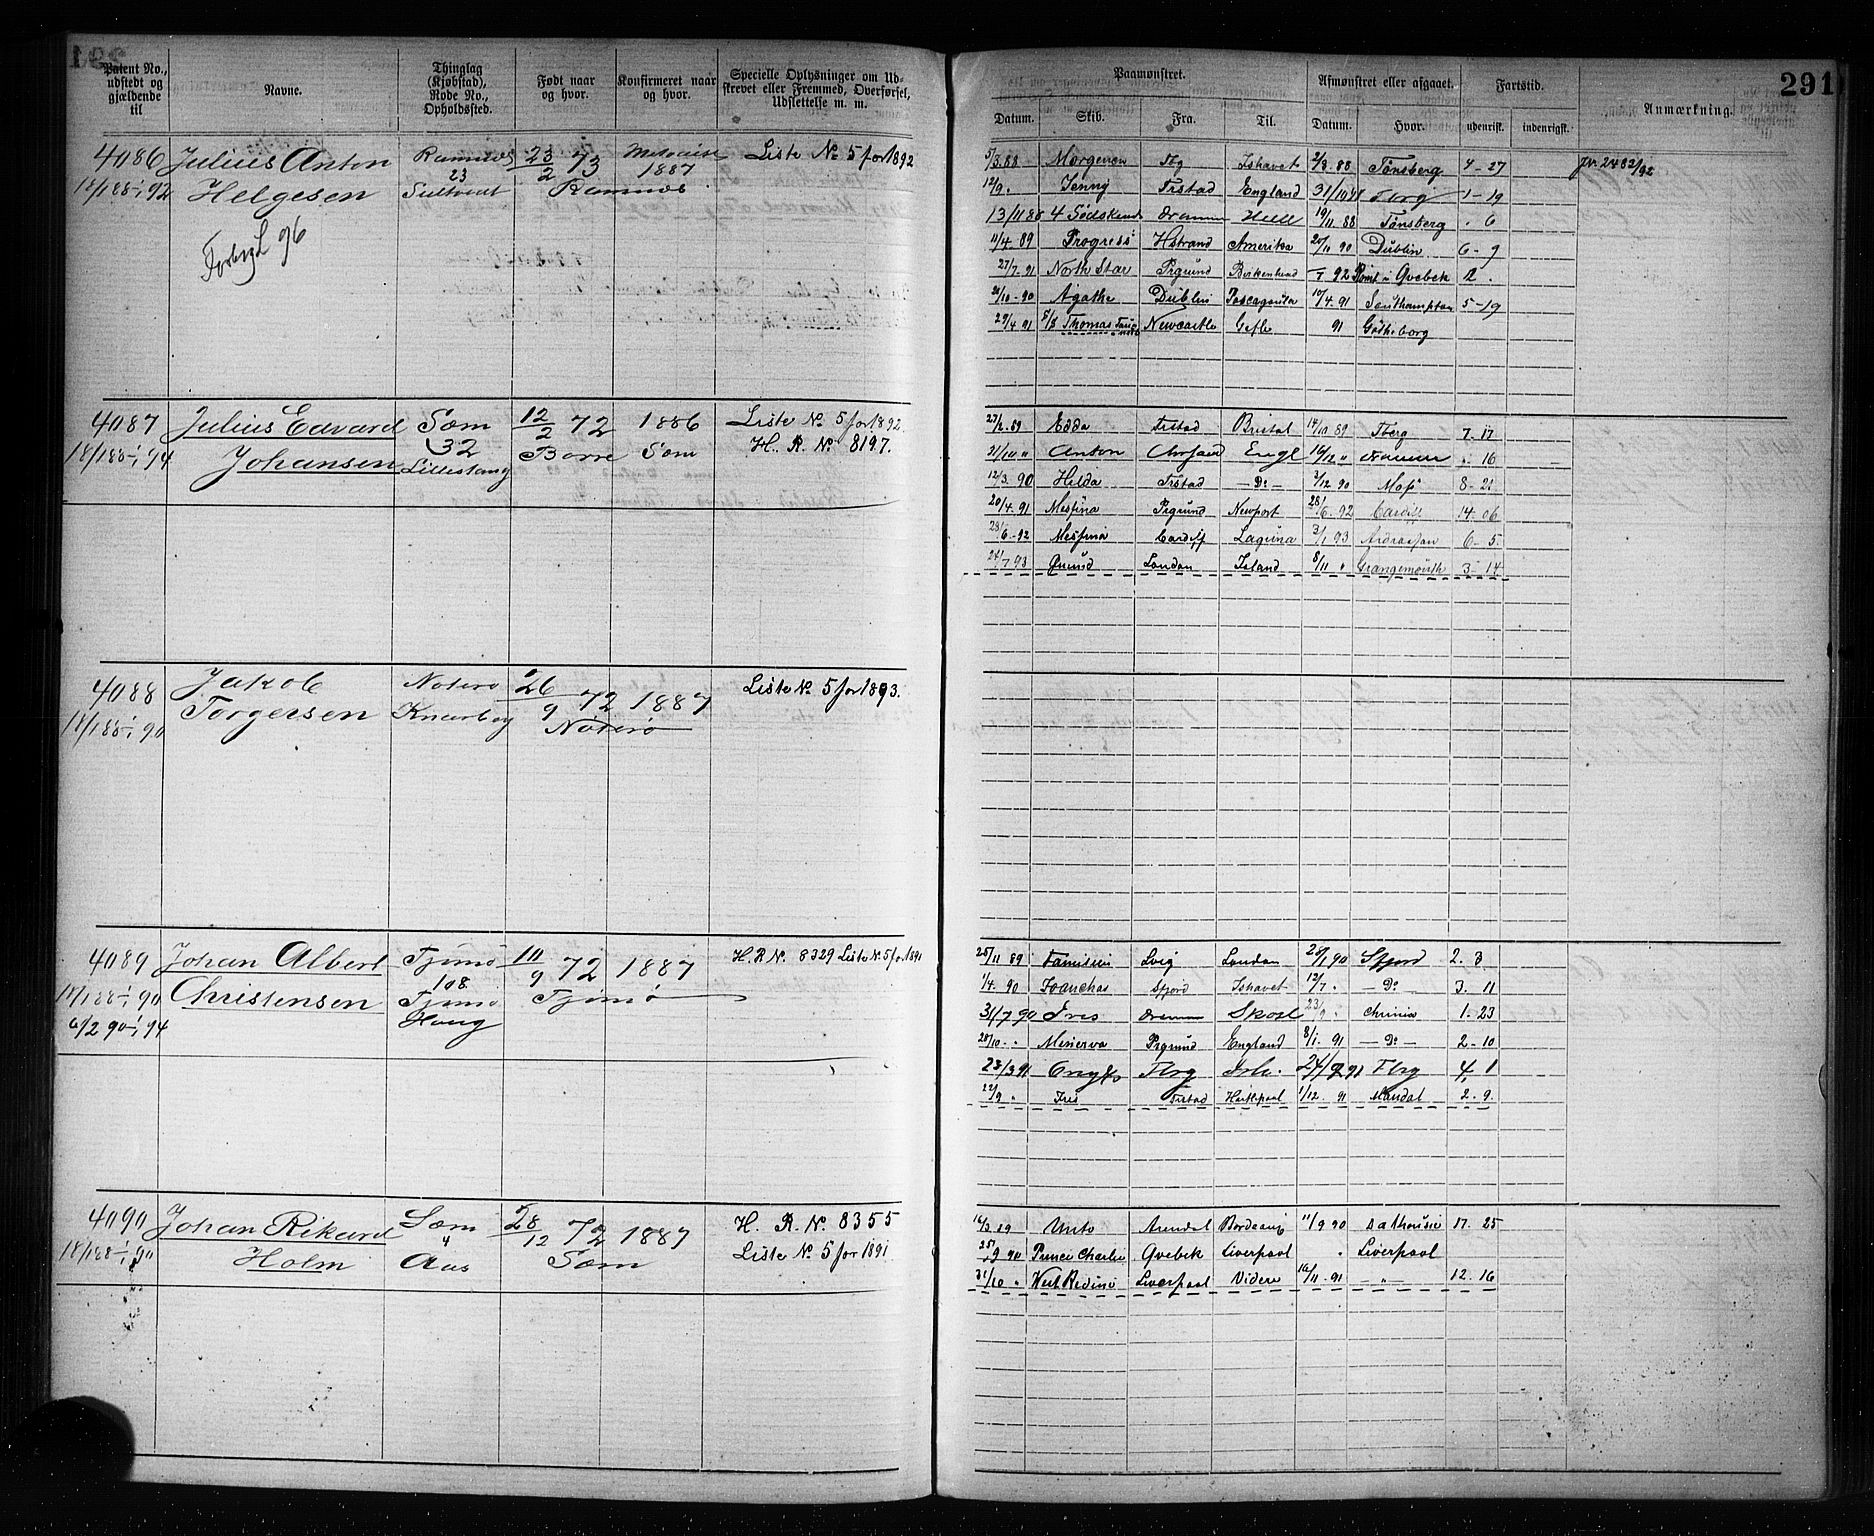 291
Patent No., udstedt og gjældende til
Navne.
Thinglag (Kjøbstad), Rode No., Opholdssted.
Født naar og hvor.
Konfirmeret naar og hvor.
Specielle Oplysninger om Udstrevet eller Fremmed, Overførsel, Udslettelse m. m.
4086 Julius Anton Ramnæs 23/2 73 1887 Liste No 5 for 1892
18/1 88-1/1 92 Helgesen 23 Ramnæs
96
4087 Julius Edvard Sæm 12/2 72 1886 Liste No 5 for 1892.
18/1 88-1/1 94 Johansen 32 Borre Sæm H. R. No 8197.
Lillestang
4088 Jakob Nøterø 26/9 72 1887 Liste No 5 for 1893.
18/1 88-1/1 90 Torgersen Knarberg Nøterø
4089 Johan Albert Tjømø 10/9 72 1887 H.R No. 8329 Liste No. 5 for 1891
18/1 88-1/1 90 Christensen 108 Tjømø Tjømø
6/2 90-1/1 94 Haug
4090 Johan Rikard Sæm 28/12 72 1887 H. R. No. 8355
18/1 88-1/1 90 Holm 4 Aas Sæm Liste No. 5 for 1891
291
Paamønstret.
Afmønstret eller afgaaet.
Fartstid.
Anmærkning.
Datum. Skib. Fra. Til. Datum. Hvor. udenrigst. indenrigst.
5/3 88 Morgenen Tbg Ishavet 2/8 88 Tønsberg 4-27 pr. 2482/92
12/9 " Jenny Frstad England 31/10 88 Tbrg 1-19
13/11 88 4 Sødskende Drammen Hull 19/11 88 Tønsberg " 6
11/4 89 Progress Hstrand Amerika 20/11 90 Dublin 6-9
27/7 91 North Star Prgrund Birkenhead 92 Qvebek 2 "
20/10-90 Agathe Dublin Pascagoula 10/4 91 Southampton 5-19
29/4 91 S/S Thomas Newcastle Gefle 91 Gøtheborg
27/2 89 Edda Frstad Bristol 14/10 89 Tberg 7-17
21/10 " Anton Engl 16/12 " Dramm " 16
12/3 90 Hilda Frstad - Do - 3/12 90 Moss 8-21
20/4 91 Messina Prgrund Newport 28/6 92 Cardiff 14-06
28/6-92 Messina Cardiff Laguna 3/1 93 Ardrossan 6-5
24/7 93 Ønund London Island 8/11 " Grangemouth 3-14
25/11 89 Familien Lvig London 28/1 90 Sfjord 2-3
1/4 90 Sfjord Ishavet 12/7 " - Do - 3-11
31/7 90 Iris Dramm Skotl 23/9 " Chrinia 1-23
28/10 - " Minerva Prgrund England 8/1-91 - Do - 2-10
23/3 91 Tbrg Tbrg 4, 1
22/9 " Iris Frstad Hartlpool 1/12-91 Mandal 2-9
16/3 89 Unto Arendal 11/9 90 Dalhousie 17-25
25/9 90 Prince Charlie Qvebek Liverpool " Liverpool
31/10 " Liverpool Videre 16/11-91 - " - 12-16